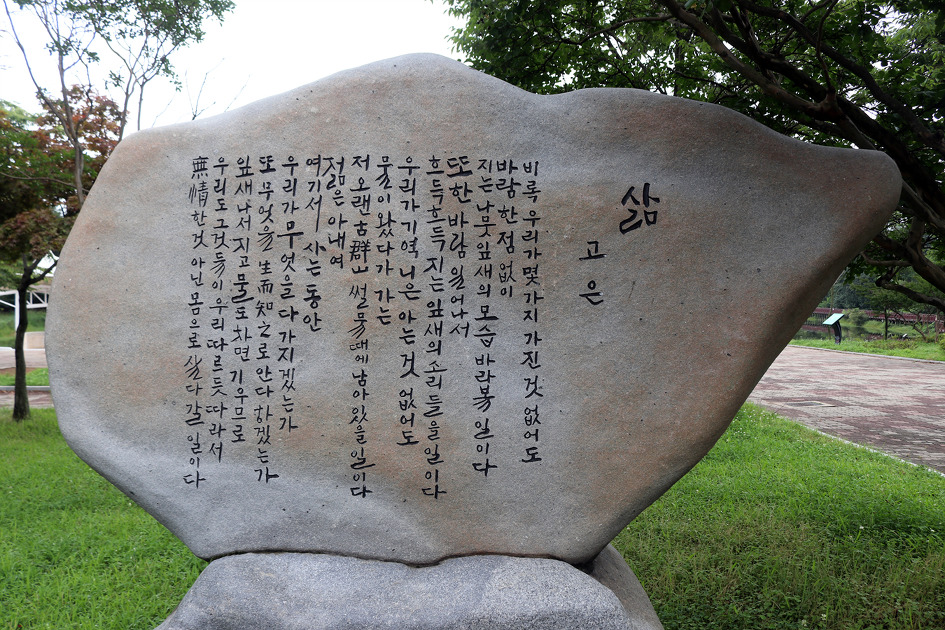 삶
고은
비록 우리가 몇가지 가진것 없어도
바람 한점 없이
지는 나뭇잎새의 모습 바라볼 일이다
또한 바람 일어나서
흐득흐득 지는 잎새의 소리 들을 일이다
우리가 기역 니은 아는것 없어도
물이 왔다가 가는
저 오랜 古群山 썰물때에 남아있을 일이다
젊은 아내여
여기서 사는동안
우리가 무엇을 다 가지겠는가
또 무엇을 生而知之로 안다 하겠는가
잎새 나서 지고 물도 차면 기우므로
우리도 그것들이 우리 따르듯 따라서
無情한것 아닌 몸으로 살다 갈 일이다